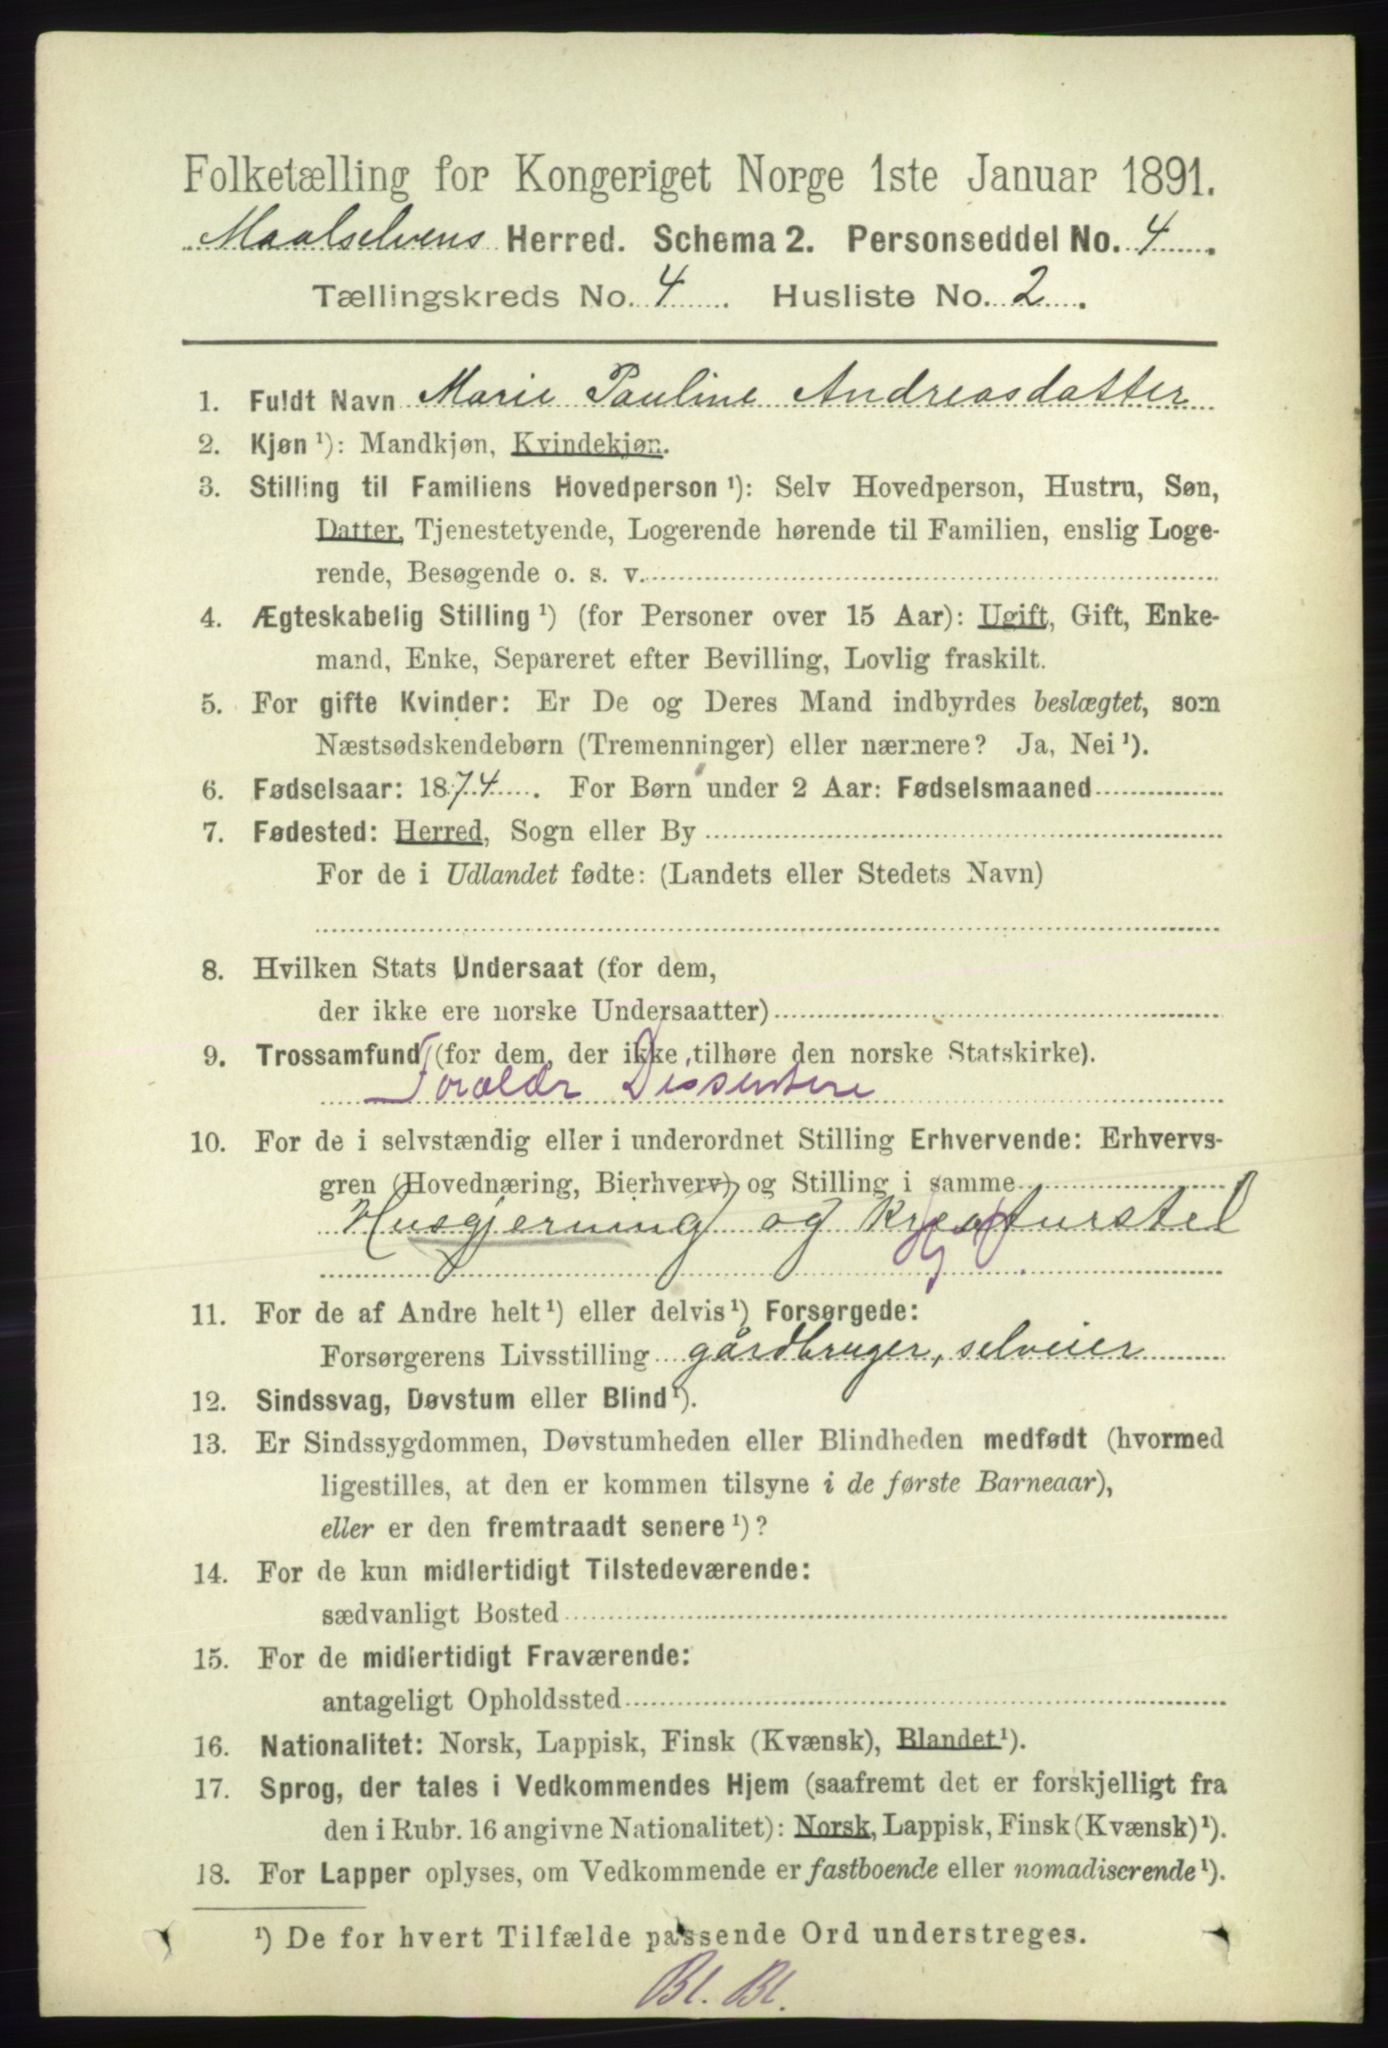 Folketælling for Kongeriget Norge 1ste Januar 1891.
Maalselvens Herred. Schema 2. Personseddel No. 4.
Tællingskreds No. 4. Husliste No. 2.
1. Fuldt Navn Marie Pauline Andreasdatter
2. Kjøn ¹): Mandkjøn, Kvindekjøn.
3. Stilling til Familiens Hovedperson ¹): Selv Hovedperson, Hustru, Søn,
Datter, Tjenestetyende, Logerende hørende til Familien, enslig Loge-
rende, Besøgende o. s. v.
4. Ægteskabelig Stilling ¹) (for Personer over 15 Aar): Ugift, Gift, Enke-
mand, Enke, Separeret efter Bevilling, Lovlig fraskilt.
5. For gifte Kvinder: Er De og Deres Mand indbyrdes beslægtet, som
Næstsødskendebørn (Tremenninger) eller nærmere? Ja, Nei ¹).
6. Fødselsaar: 1874. For Børn under 2 Aar: Fødselsmaaned
7. Fødested: Herred, Sogn eller By
For de i Udlandet fødte: (Landets eller Stedets Navn)
8. Hvilken Stats Undersaat (for dem,
der ikke ere norske Undersaatter)
9. Trossamfund (for dem, der ikke tilhøre den norske Statskirke).
Forældr Dissentere
10. For de i selvstændig eller i underordnet Stilling Erhvervende: Erhvervs-
gren (Hovednæring, Bierhverv) og Stilling i samme
Husgjerning og Kreaturstel
11. For de af Andre helt ¹) eller delvis ¹) Forsørgede:
Forsørgerens Livsstilling gårdbruger, selveier
12. Sindssvag, Døvstum eller Blind ¹).
13. Er Sindssygdommen, Døvstumheden eller Blindheden medfødt (hvormed
ligestilles, at den er kommen tilsyne i de første Barneaar),
eller er den fremtraadt senere ¹)?
14. For de kun midlertidigt Tilstedeværende:
sædvanligt Bosted
15. For de midlertidigt Fraværende:
antageligt Opholdssted
16. Nationalitet: Norsk, Lappisk, Finsk (Kvænsk), Blandet ¹).
17. Sprog, der tales i Vedkommendes Hjem (saafremt det er forskjelligt fra
den i Rubr. 16 angivne Nationalitet): Norsk, Lappisk, Finsk (Kvænsk) ¹).
18. For Lapper oplyses, om Vedkommende er fastboende eller nomadiserende ¹).
¹) De for hvert Tilfælde passende Ord understreges.
Bl. Bl.